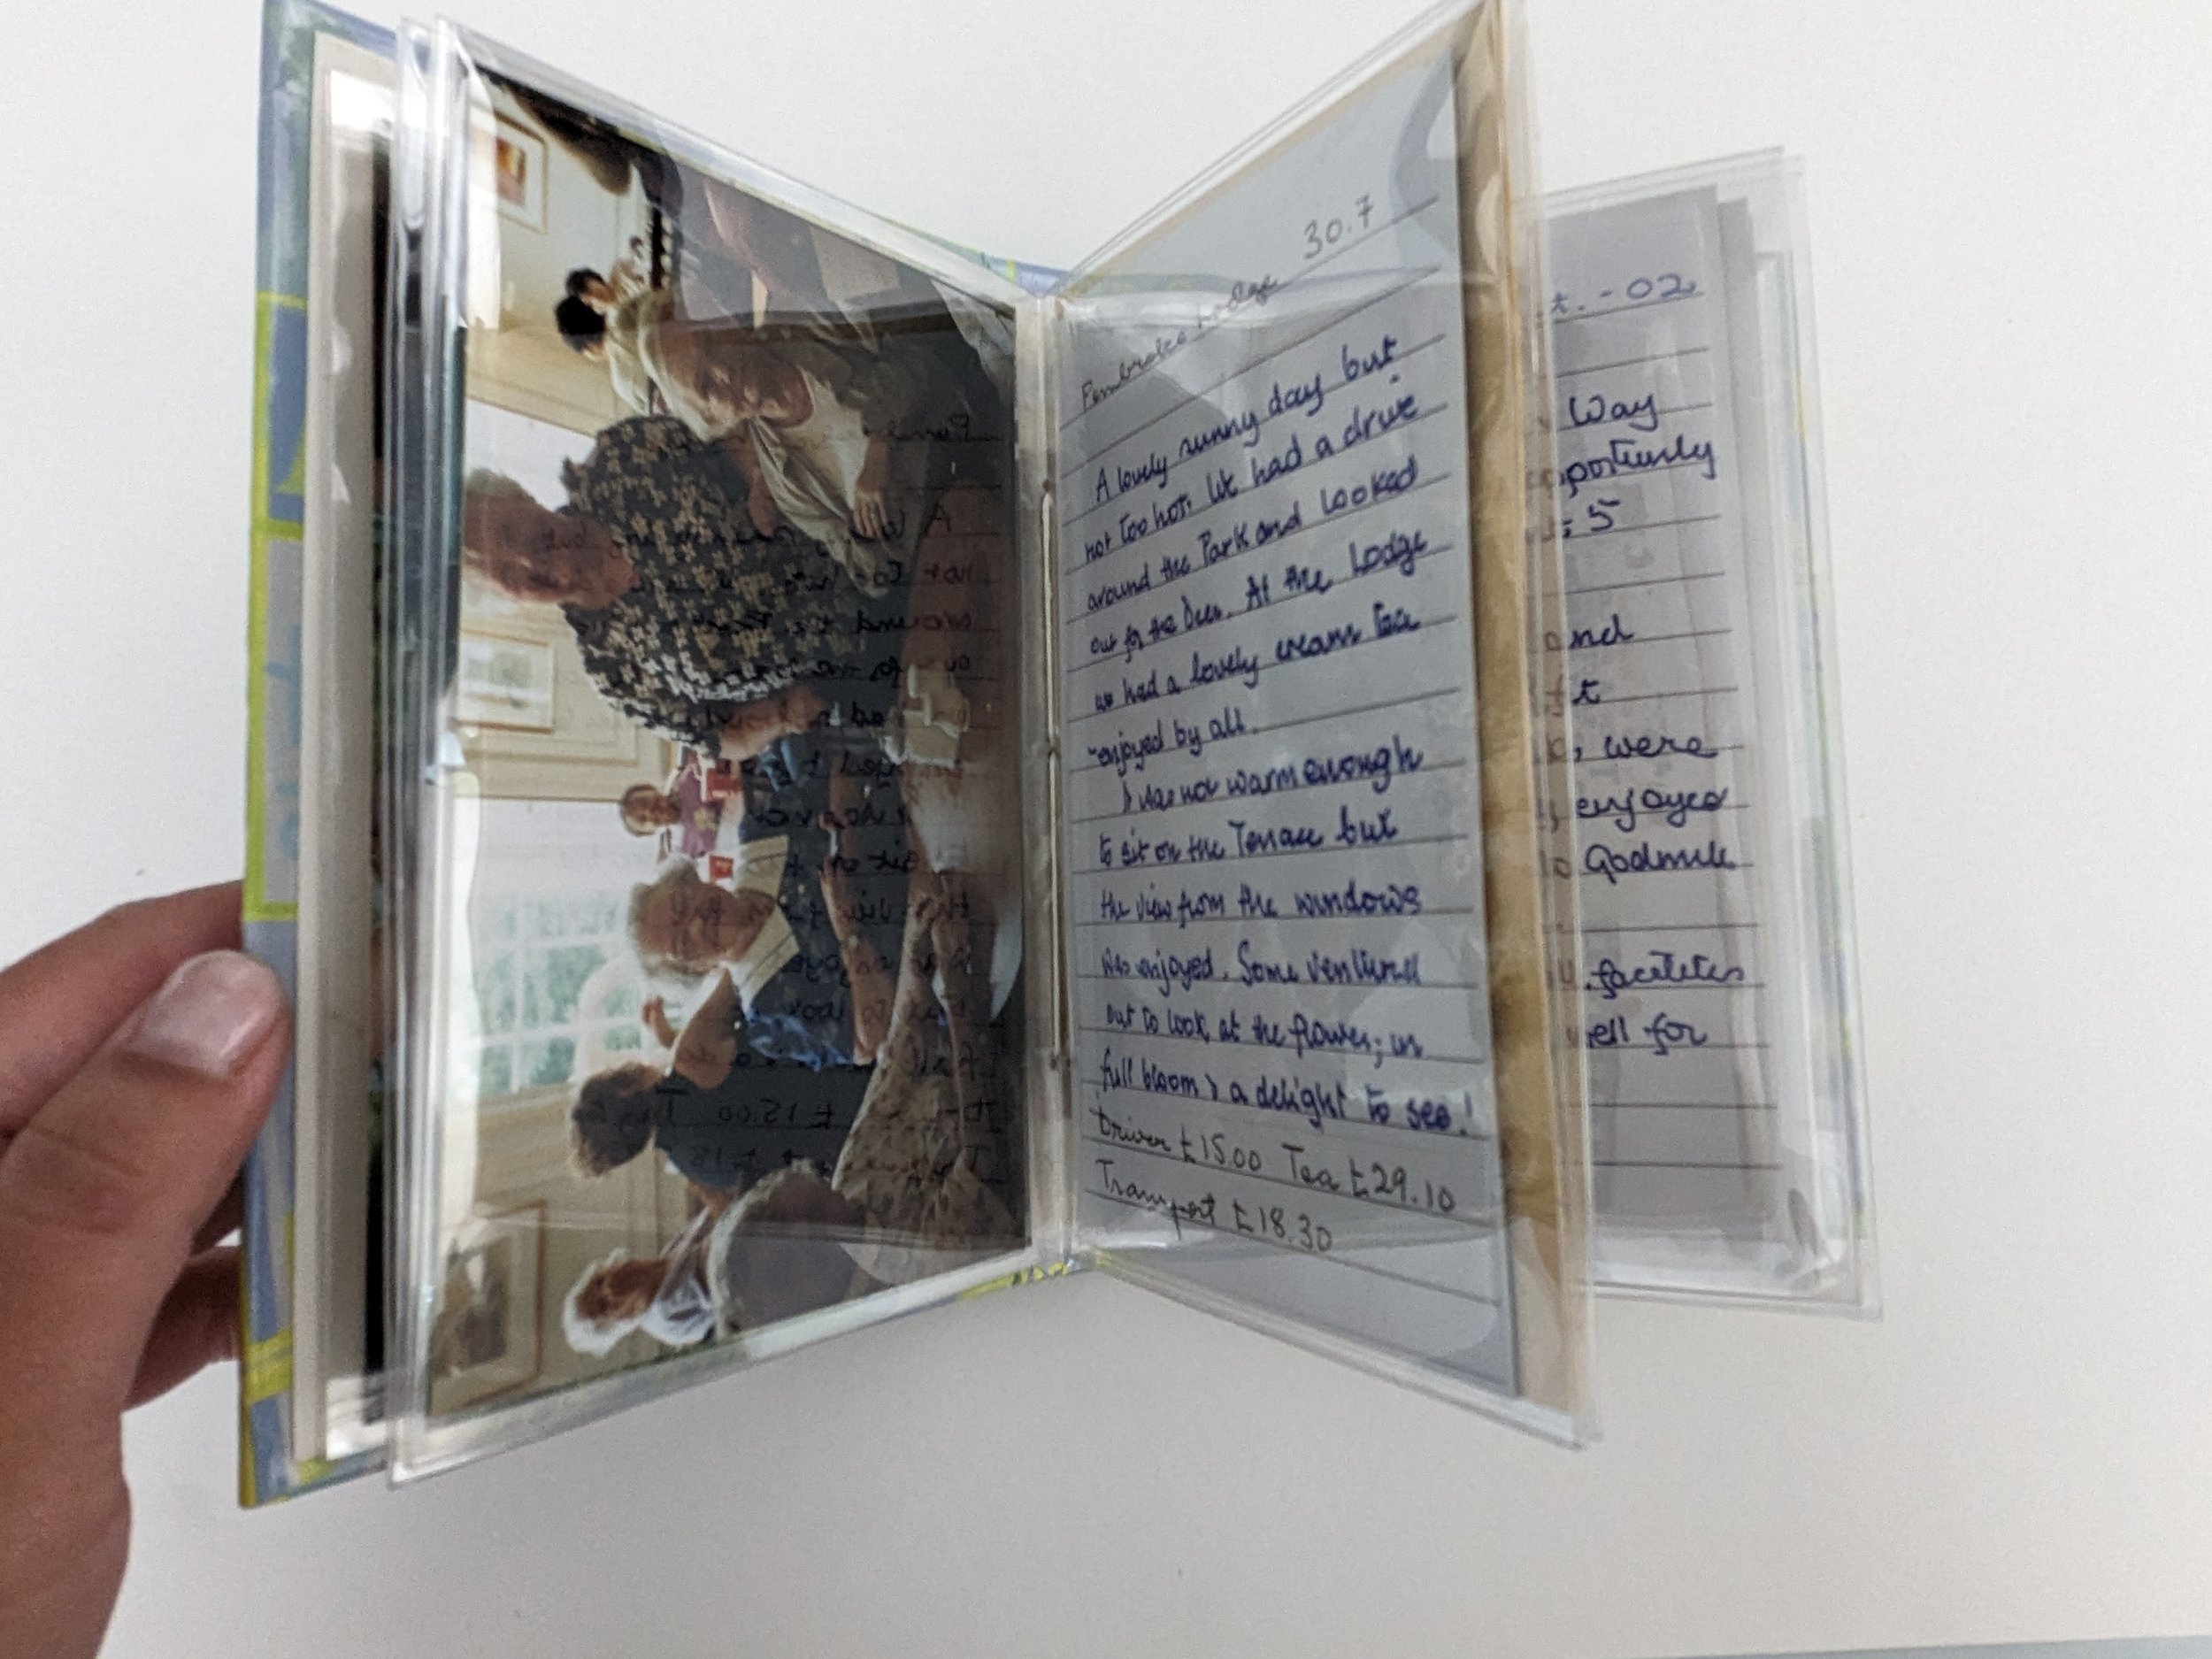 Pembroke Lodge 30.7
A lovely sunny day but
not too hot. We had a drive
around the Park and looked
out for the Deer. At the Lodge
we had a lovely cream tea
enjoyed by all.
was not warm enough
to sit on the Terrace but
the view from the windows
was enjoyed. Some ventured
out to look at the flowers; in
full bloom a delight to see!
Driver £15.00 Tea £29.10
Transport £18.30
t. - 02
Way
5
and
were
enjoyed
ell for